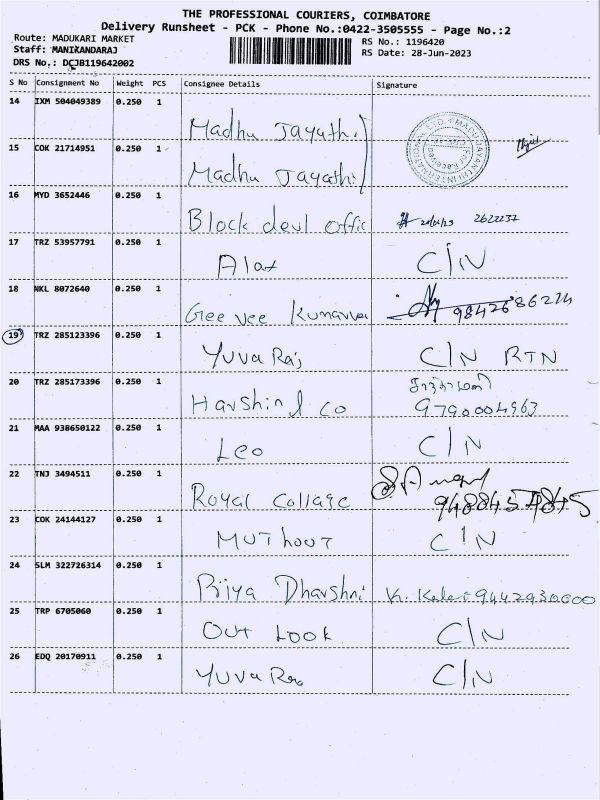 THE PROFESSIONAL COURIERS, COIMBATORE
Delivery Runsheet - PCK - Phone No.:0422-3505555 - Page No.:2
Route: MADUKARI MARKET
RS No.: 1196420
Staff: MANIKANDARAJ
RS Date: 28-Jun-2023
DRS No.: DCJB119642002
S No Consignment No Weight PCS Consignee Details Signature
14 IXM 504049389 0.250 1 Madhu Jayathi
15 COK 21714951 0.250 1 Madhu Jayathi
16 MYD 3652446 0.250 1 Block devl offic 2622237
17 TRZ 53957791 0.250 1 Alat C/N
18 NKL 8072640 0.250 1 Gee vee Kumarvel 9842686214
19 TRZ 285123396 0.250 1 Yuva Raj C/N RTN
20 TRZ 285173396 0.250 1 Harshini Co 9790004963
21 MAA 938650122 0.250 1 Leo C/N
22 TNJ 3494511 0.250 1 Royal Collage
23 COK 24144127 0.250 1 MUThOUT C/N
24 SLM 322726314 0.250 1 Priya Dharshni
25 TRP 6705060 0.250 1 OUT LOOK C/N
26 EDQ 20170911 0.250 1 Yuva Raj C/N